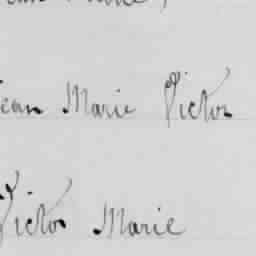 Jean Marie Victor
Victor Marie